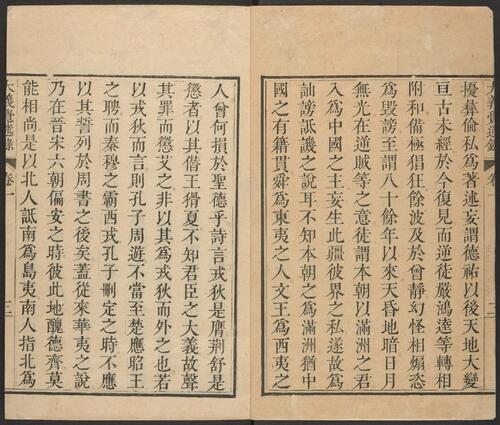 大義覺迷錄
擾彝倫私爲著述妄謂德祐以後天地大變
亘古未經於今復見而逆徒嚴鴻逵等轉相
附和備極猖狂餘波及於曾靜幻怪相煽恣
爲毀謗至謂八十餘年以來天昏地暗日月
無光在逆賊等之意徒謂本朝以滿洲之君
入爲中國之主妄生此疆彼界之私遂故爲
訕謗詆譏之說耳不知本朝之爲滿洲猶中
國之有籍貫舜爲東夷之人文王爲西夷之
人曾何損於聖德乎詩言戎狄是膺荆舒是
懲者以其僭王猾夏不知君臣之大義故聲
其罪而懲艾之非以其爲戎狄而外之也若
以戎狄而言則孔子周遊不當至楚應昭王
之聘而秦穆之霸西戎孔子刪定之時不應
以其誓列於周書之後矣蓋從來華夷之說
乃在晉宋六朝偏安之時彼此地醜德齊莫
能相尚是以北人詆南爲島夷南人指北爲
大義覺迷錄 卷一 三